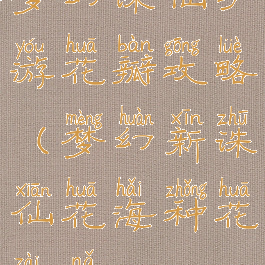 yóu huā bàn gōng lüè
游花瓣攻略
mèng huàn xīn zhū
（梦幻新诛
xiān huā hǎi zhǒng huā
仙花海种花